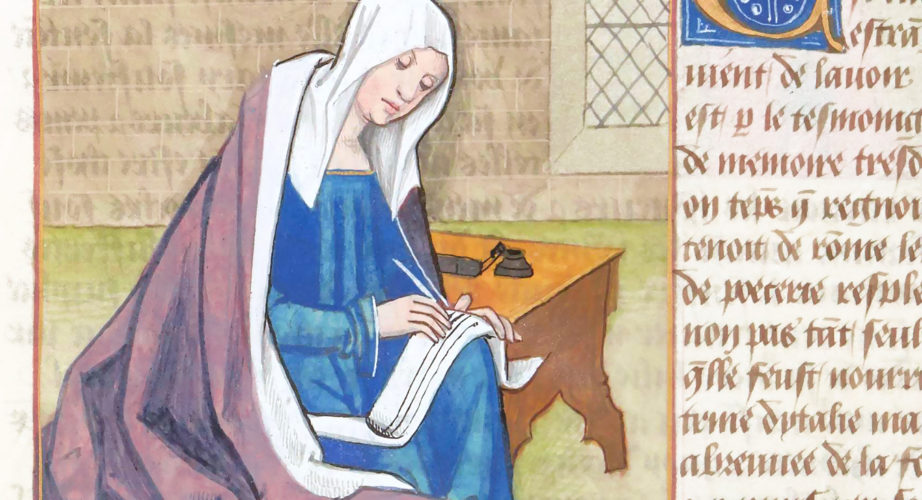 estra
ment de lauoir
est p le tesmoing
de memoire tresd
on teps q regnoi
tenoit de rome le
de poeterie resple
non pas tāt seul
qlle feust nourri
terne dytalie ma
abreuuee de la fo